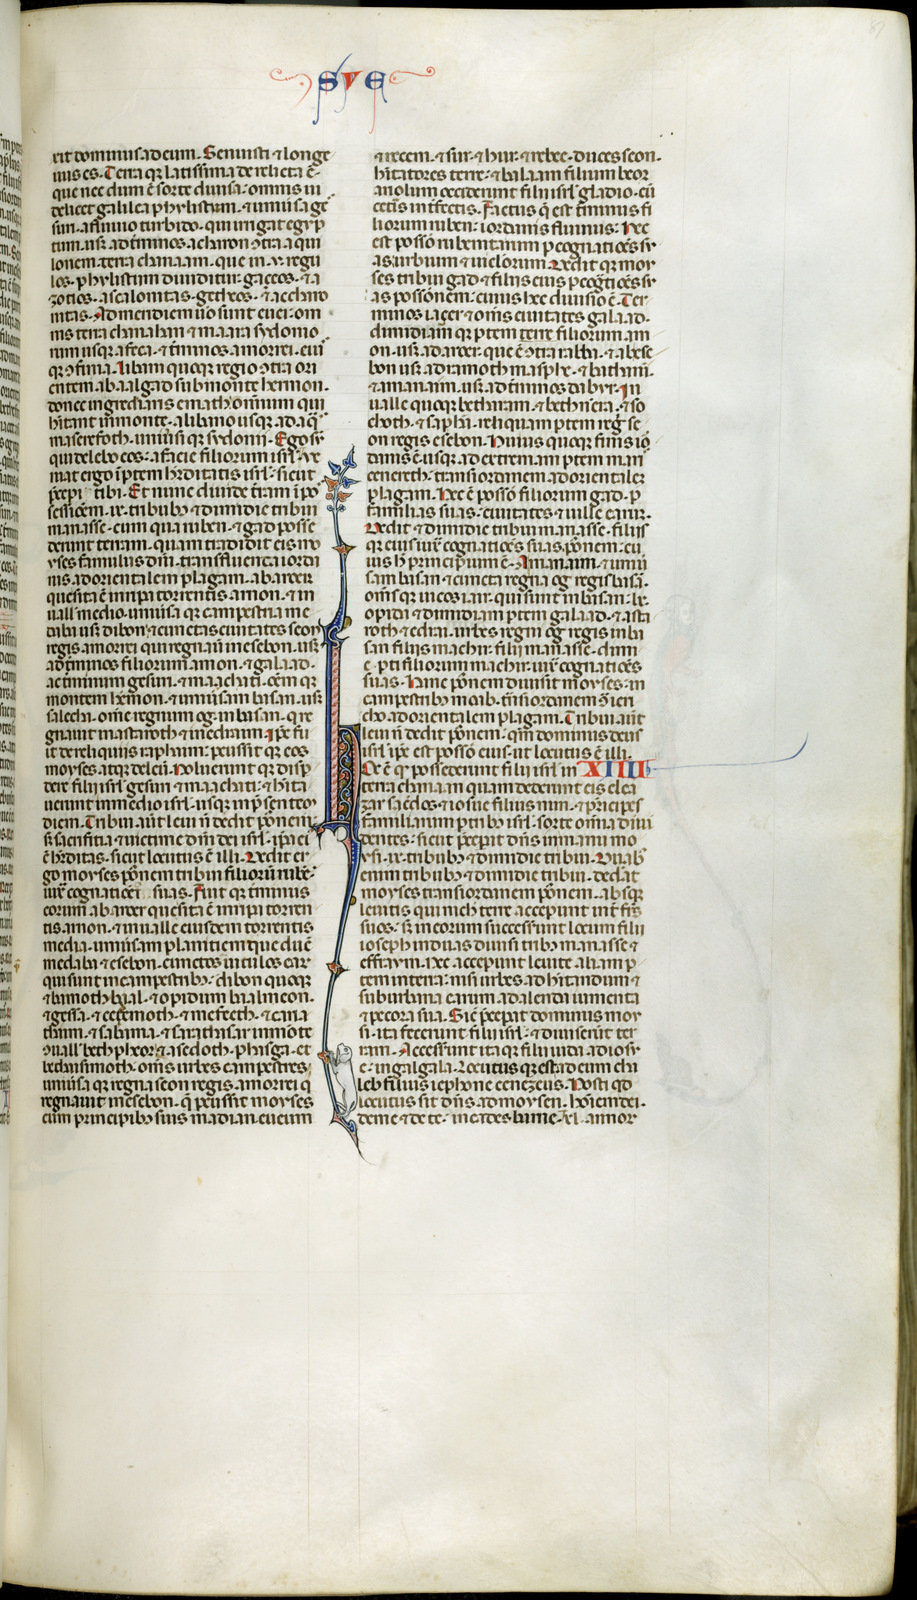 SVE
rit dominus ad eum. Senuisti ⁊ longe
uus es. Terra q̢ latissima derelicta ē
que nec dum ē sorte diuisa: omnis ui
delicet galilea phylistiim. ⁊ uniuersa ge
suri. a fluuio turbido. qui irrigat egyp
tum. usq̢ ad t̄minos acharon ꝯtra aqui
lonem. terra chanaam. que in .v. regu
los. phylistiim diuiditur. gaceos. ⁊ a
zotios. ascalonitas. getheos. ⁊ acharo
nitas. Ad meridiem uo sunt euei. om
nis terra chanahan ⁊ maara sydonio
rum usque afeca. ⁊ t̄minos amorrei. eiꝰ
q̢ ꝯfinia. libani quoque regio ꝯtra ori
entem. abaalgad sub monte hermon.
donec ingrediaris emath. omnium qui
hitant in monte. a libano usque ad aq̄s
maserefoth. uniūsi q̢ sydonii. Ego sū
qui delebo eos. a facie filiorum isrl̄. ve
niat ergo ī ptem hr̄ditatis isrl̄. sicut
p̄cepi tibi. Et nunc diuide tr̄am ī po
sessiōem. ix. tribubꝰ ⁊ dimidie tribui
manasse. cum qua ruben. ⁊ gad posse
derunt terram. quam tradidit eis mo
yses famulus dn̄i. trans fluenta iorda
nis. ad orientalem plagam. ab aroer
que sita ē in ripa torrentis arnon. ⁊ in
uall̄ medio. uniūsa q̢ campestria me
daba usq̢ dibon. ⁊ cunctas ciuitates seon
regis amorrei qui regnauit in esebon. usq̢
ad t̄minos filiorum amon. ⁊ galaad.
ac terminum gesuri. ⁊ maachati. ōem q̢
montem hermon. ⁊ uniūsam basan. usq̢
salecha. om̄e regnum og. in basan. q̄ re
gnauit in astaroth. ⁊ in edraim. Ipe fu
it de reliquiis raphaim: peussit q̢ eos
moyses. atq̢ deleuit. Noluerunt q̢ disp
dere filii isrl̄ gesuri ⁊ maachati. ⁊ hita
uerunt in medio isrl̄. usq̢ in p̄sentē
diem. Tribui aūt leui n̄ dedit p̄onem.
s̄ sacrificia ⁊ uictime dn̄i dei isrl̄. ip̄a ei
ē hr̄ditas. sicut locutus ē illi. Dedit er
go moyses p̄onem tribui filiorū rubē.
iux̄ cognatiōes suas. Fuit q̢ t̄minus
eorum ab aroer que sita ē in ripa torren
tis arnon. ⁊ in ualle eiusdem torrentis
media. uniūsam planitiem que ducit
medaba ⁊ esebon. cunctos uiculos ear̄
qui sunt in campestribꝰ. dibon quoque
⁊ bamoth baal. ⁊ opidum baalmeon.
⁊ gessa. ⁊ cedemoth. ⁊ mefeeth. ⁊ caria
thaim. ⁊ sabama. ⁊ sarathasar in mōte
ꝯuall̄. bethpheor. ⁊ asedoth. phasga. et
bethsimoth. om̄is urbes campestres.
uniūsa q̢ regna seon regis amorrei q̄
regnauit in esebon. q̄ peussit moyses
cum principibꝰ suis madian. eueum
⁊ recem. ⁊ sur. ⁊ hur. ⁊ rebee. duces seon.
hitatores terre. ⁊ balaam filium beor
ariolum occiderunt filii isrl̄ gladio. cū
cet̄is int̄fectis. Factus q̢ est t̄minus fi
liorum ruben. iordanis fluuius. Hec
est possō rubenitarum p cognatiōes su
as urbium ⁊ uiclorum. Dedit q̢ moy
ses tribui gad ⁊ filiis eius p cogtiōes su
as possōnem. cuius hec diuisio ē. Ter
minos iazer ⁊ om̄is ciuitates galaad.
dimidiam q̢ ptem terre filiorum am
on. usq̢ ad aroer. que ē ꝯtra rabba. ⁊ ab ese
bon usq̢ ad ramoth masphe. ⁊ bathanī.
⁊ manaim. usq̢ ad t̄minos dabyr. In
ualle quoque betharam. ⁊ bethnera. ⁊ so
choth. ⁊ saphan. reliquam ptem reg̅. se
on regis esebon. Huius quoque finis ior
danis ē. usq̢ ad extremam ptem maris
cenereth. trans iordanem ad orientalem
plagam. Hec ē possō filiorum gad. p
familias suas. ciuitates ⁊ uille earum.
Dedit ⁊ dimidie tribui manasse. filiis
q̢ eius iux̄ cognatiōes suas p̄onem. cu
ius h̄ principium ē. Amanaim. ⁊ uniū
sam basan. ⁊ cuncta regna og regis basā.
om̄s q̢ uicos iair. qui sunt in basan. lx.
opida. ⁊ dimidiam ptem galaad. ⁊ asta
roth. ⁊ edrai. urbes regni og regis in ba
san. filiis machir. filii manasse. dimi
e pti filiorum machir. iux̄ cognatiōes
suas. Hanc p̄onem diuisit moyses. in
campestribꝰ moab. t̄ns iordanem ꝯ ieri
cho ad orientalem plagam. Tribui aūt
leui n̄ dedit p̄onem. qm̄ dominus deus
isrl̄. ip̄e est possō eius. ut locutus ē illi.
Hec ē q̢ possederunt filii isrl̄ in XIIII
terra chanaan quam dederunt eis elea
zar sac̄dos. ⁊ iosue filius nun. ⁊ p̄ncipes
familiarum p tribꝰ isrl̄. sorte om̄ia diui
dentes. sicut p̄cepit dn̄s in manu mo
ysi. ix. tribubꝰ ⁊ dimidie tribui. Duabꝰ
enim tribubꝰ ⁊ dimidie tribui. dedat
moyses trans iordanem p̄onem. absq̢
leuitis qui nich̄ terre acceperunt int̄ fr̄s
suos. s̄ in eorum successerunt locum filii
ioseph in duas diuisi tribꝰ manasse ⁊
effraym. Nec acceperunt leuite aliam p
tem in terra. nisi urbes ad hitandum ⁊
suburbana earum ad alenda iumenta
⁊ pecora sua. Sic̄ p̄cepit dominus moy
si. ita fecerunt filii isrl̄. ⁊ diuiserūt ter
ram. Accesserunt itaque filii iuda ad iosu
e. in galgala. Locutus q̢ est ad eum cha
leb filius iephone cenezeus. Nosti qd̄
locutus sit dn̄s ad moysen. hoīem dei.
de me ⁊ de te. in cades barne. xl. annor̄